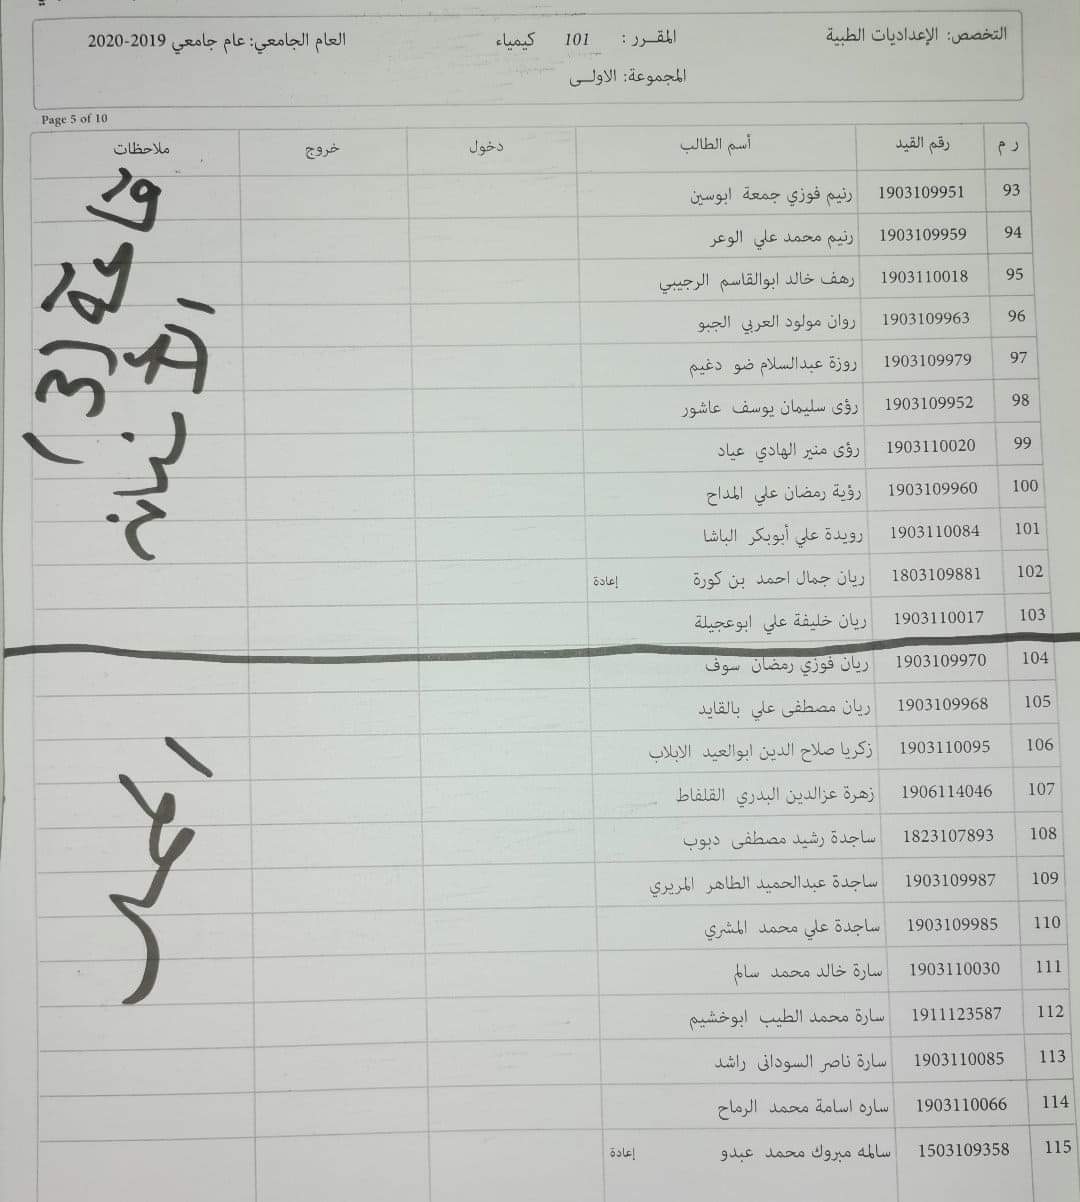 التخصص: الإعداديات الطبية المقـرر : 101 كيمياء العام الجامعي: عام جامعي 2019-2020
المجموعة: الاولـى
Page 5 of 10
ر م رقم القيد أسم الطالب دخول خروج ملاحظات
93 1903109951 رنيم فوزي جمعة ابوسين
94 1903109959 رنيم محمد علي الوعر
95 1903110018 رهف خالد ابوالقاسم الرجيبي
96 1903109963 روان مولود العربي الجبو
97 1903109979 روزة عبدالسلام ضو دغيم
98 1903109952 رؤى سليمان يوسف عاشور
99 1903110020 رؤى منير الهادي عياد
100 1903109960 رؤية رمضان علي المداح
101 1903110084 رويدة علي أبوبكر الباشا
102 1803109881 ريان جمال احمد بن كورة إعادة
103 1903110017 ريان خليفة علي ابوعجيلة
104 1903109970 ريان فوزي رمضان سوف
105 1903109968 ريان مصطفى علي بالقايد
106 1903110095 زكريا صلاح الدين ابوالعيد الابلاب
107 1906114046 زهرة عزالدين البدري القلفاط
108 1823107893 ساجدة رشيد مصطفى دبوب
109 1903109987 ساجدة عبدالحميد الطاهر المريري
110 1903109985 ساجدة علي محمد المشري
111 1903110030 سارة خالد محمد سالم
112 1911123587 سارة محمد الطيب ابوخشيم
113 1903110085 سارة ناصر السودانى راشد
114 1903110066 ساره اسامة محمد الرماح
115 1503109358 سالمه مبروك محمد عبدو إعادة
(3)